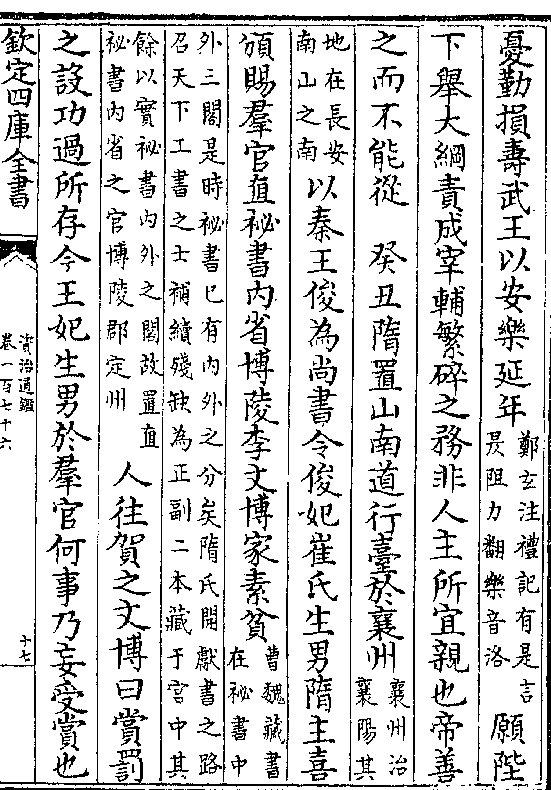 憂勤損壽武王以安樂延年
鄭玄注禮記有是言
昃阻力翻樂音洛
願陛
下舉大綱責成宰輔繁碎之務非人主所宜親也帝善
之而不能從　癸丑隋置山南道行臺於襄州
襄州治
襄陽其
地在長安
南山之南
以秦王俊為尚書令俊妃崔氏生男隋主喜
頒賜羣官直祕書内省博陵李文博家素貧
曹魏藏書
在祕書中
外三閣是時祕書已有内外之分矣隋氏開獻書之路
召天下工書之士補續殘缺為正副二本藏于宫中其
餘以實祕書内外之閣故置直
祕書内省之官博陵郡定州
人往賀之文博曰賞罰
之設功過所存今王妃生男於羣官何事乃妄受賞也
欽定四庫全書
資治通鑑
卷一百七十六
十七